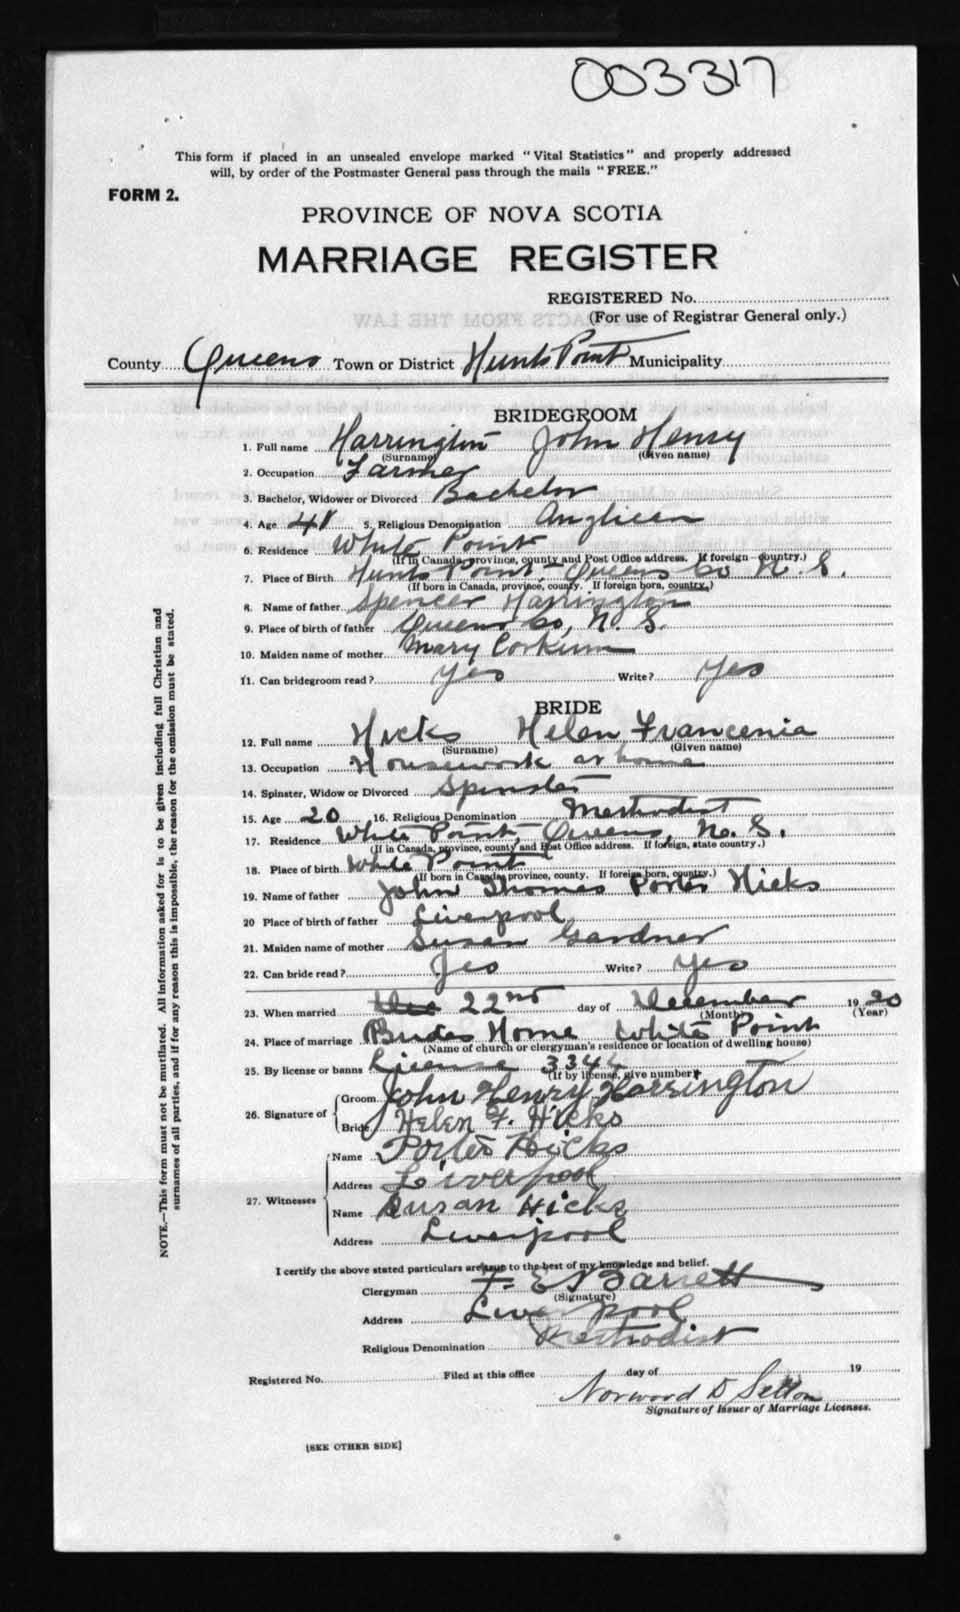 003317
This form if placed in an unsealed envelope marked "Vital Statistics" and properly addressed
will, by order of the Postmaster General pass through the mails "FREE."
FORM 2.
PROVINCE OF NOVA SCOTIA
MARRIAGE REGISTER
REGISTERED No.
(For use of Registrar General only.)
County Queens Town or District Hunts Point Municipality
BRIDEGROOM
1. Full name Harrington John Henry
(Surname) (Given name)
2. Occupation Farmer
3. Bachelor, Widower or Divorced Bachelor
4. Age 5. Religious Denomination Anglican
6. Residence White Point
(If in Canada, province, county and Post Office address. If foreign country.)
7. Place of Birth Hunts Point, Queens Co N. S.
(If born in Canada, province, county. If foreign born, country.)
8. Name of father Spencer Harrington
9. Place of birth of father Queens Co, N. S.
10. Maiden name of mother Mary Corkum
11. Can bridegroom read? Yes Write? Yes
BRIDE
12. Full name Hicks Helen Francenia
(Surname) (Given name)
13. Occupation Housework at home
14. Spinster, Widow or Divorced Spinster
15. Age 20 16. Religious Denomination Methodist
17. Residence White Point, Queens, N. S.
(If in Canada, province, county and Post Office address. If foreign, state country.)
18. Place of birth White Point
(If born in Canada, province, county. If foreign born, country.)
19. Name of father John Thomas Porter Hicks
20 Place of birth of father Liverpool
21. Maiden name of mother Susan Gardner
22. Can bride read? Yes Write? Yes
23. When married 22nd day of December 1920
(Month) (Year)
24. Place of marriage Brides Home White Point
(Name of church or clergyman's residence or location of dwelling house)
25. By license or banns License
(If by license, give number)
26. Signature of Groom John Henry Harrington
Bride Helen F. Hicks
27. Witnesses Name Porter Hicks
Address Liverpool
Name Susan Hicks
Address Liverpool
I certify the above stated particulars are true to the best of my knowledge and belief.
Clergyman F. E. Barrett
(Signature)
Address Liverpool
Religious Denomination Methodist
Registered No. Filed at this office day of 19
Norwood D
Signature of Issuer of Marriage Licenses.
[SEE OTHER SIDE]
NOTE.—This form must not be mutilated. All information asked for is to be given including full Christian and
surnames of all parties, and if for any reason this is impossible, the reason for the emission must be stated.